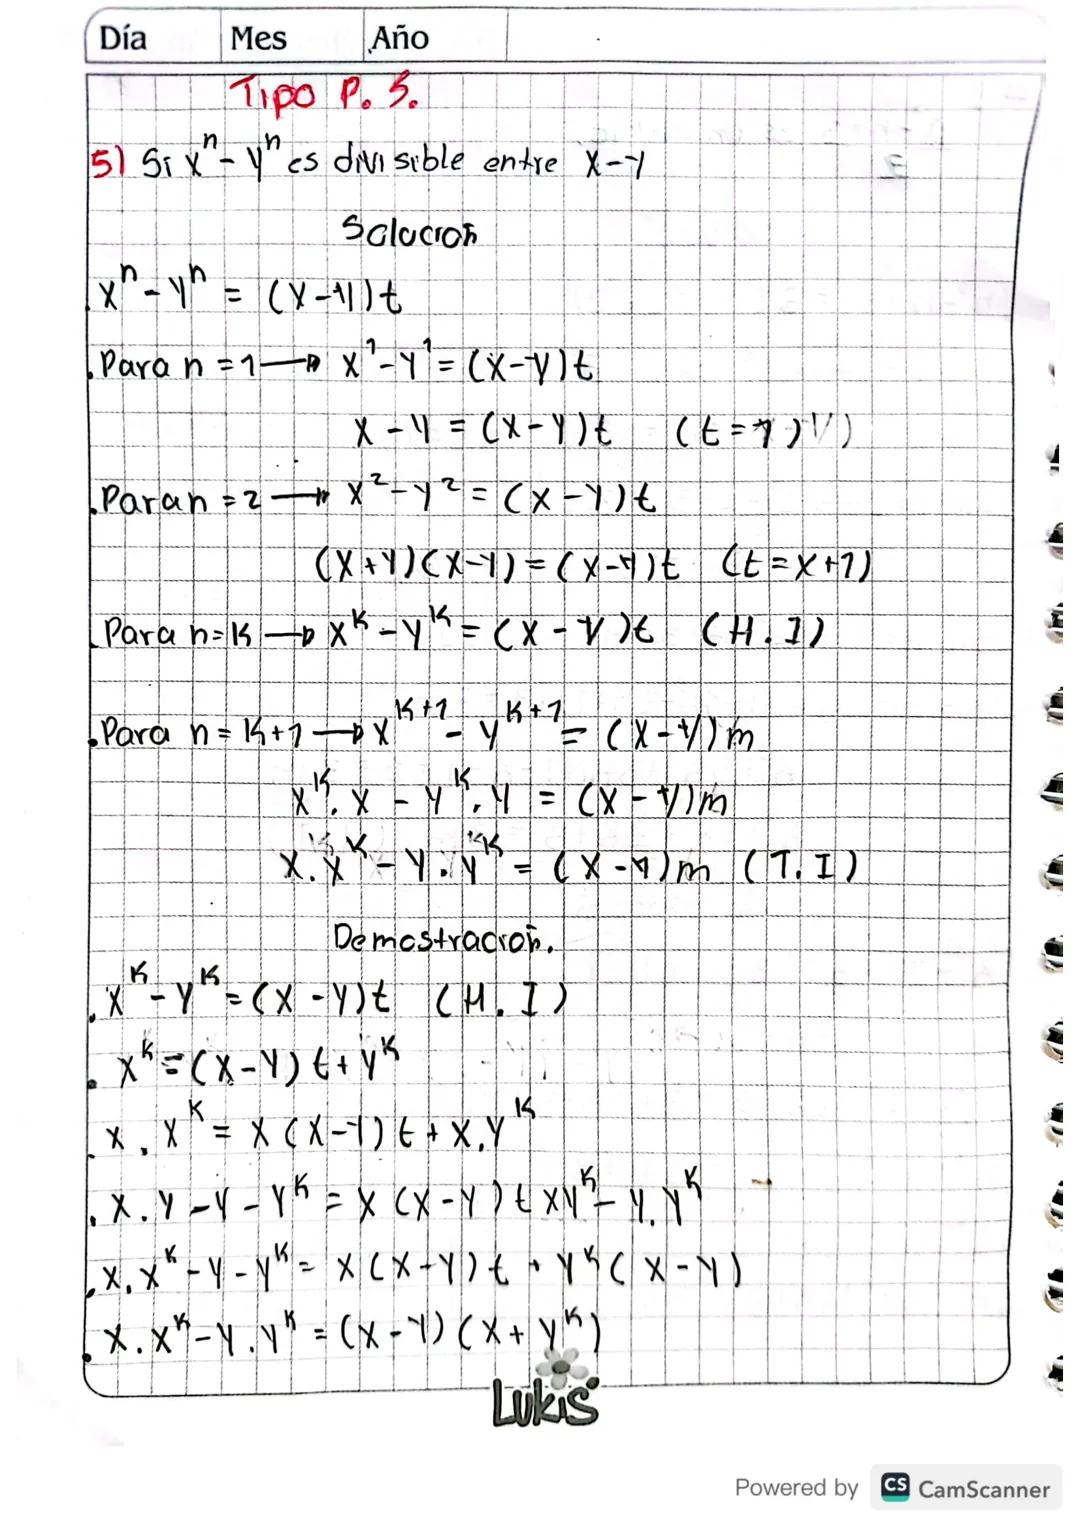 Día Mes Año
Tipo P. S.
5) Si xⁿ - yⁿ es divisible entre x-y
Solución
xⁿ - yⁿ = (x-y)t
Para n = 1 → x¹ - y¹ = (x-y)t
x - y = (x-y)t (t = 1)
Para n = 2 → x² - y² = (x-y)t
(x+y)(x-y) = (x-y)t (t = x+1)
Para n = k → xᵏ - yᵏ = (x-y)t (H.I)
Para n = k+1 → xᵏ⁺¹ - yᵏ⁺¹ = (x-y)m
xᵏ.x - yᵏ.y = (x-y)m
x.xᵏ - y.yᵏ = (x-y)m (T.I)
Demostración.
xᵏ - yᵏ = (x-y)t (H.I)
xᵏ = (x-y)t + yᵏ
x.xᵏ = x(x-y)t + x.yᵏ
x.y - y - yᵏ = x(x-y)t xyᵏ - y.yᵏ
x.xᵏ - y - yᵏ = x(x-y)t + yᵏ(x-y)
x.xᵏ - y.yᵏ = (x-y)(x+yᵏ)
Lukis
Powered by CS CamScanner